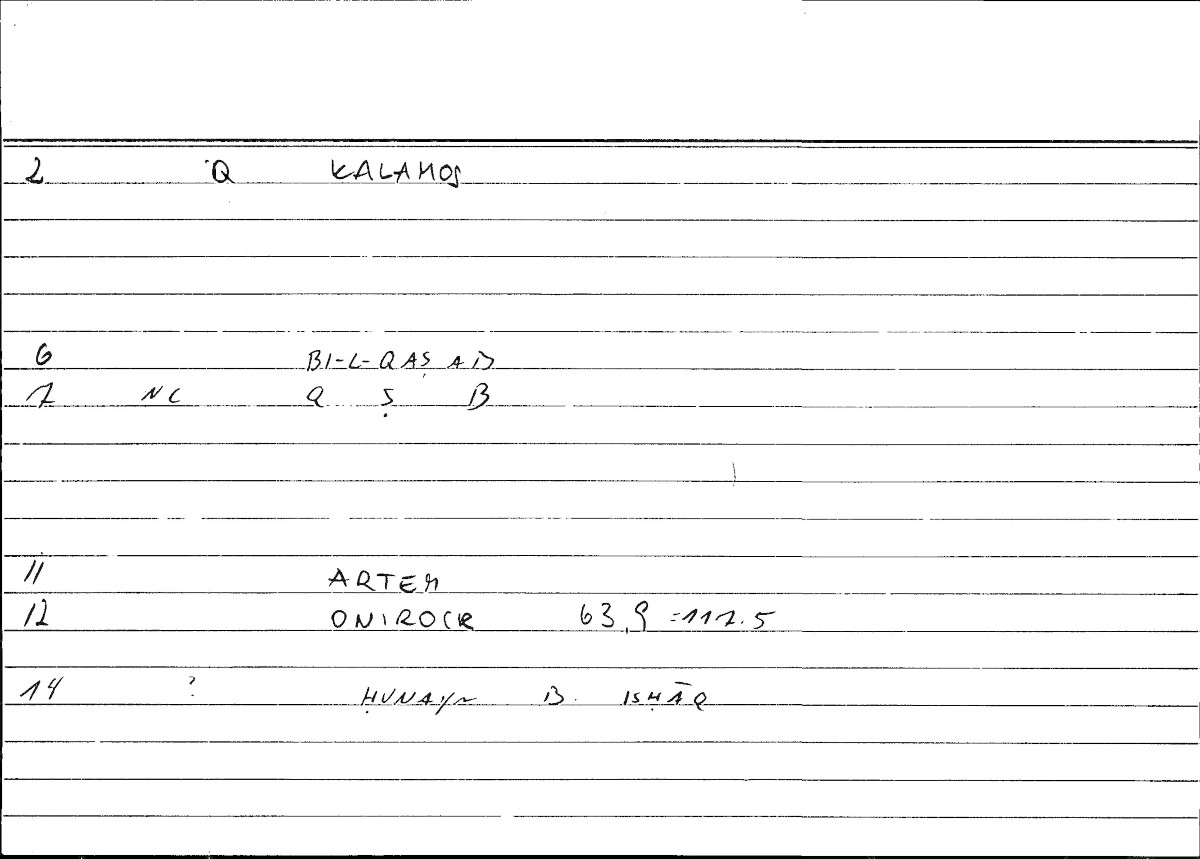 2 Q KALAMOS
6 BI-L-QAṢAB
7 NC Q Ṣ B
11 ARTEM
12 ONIROCR 63,9 =117.5
14 ? ḤUNAYN B. ISḤĀQ